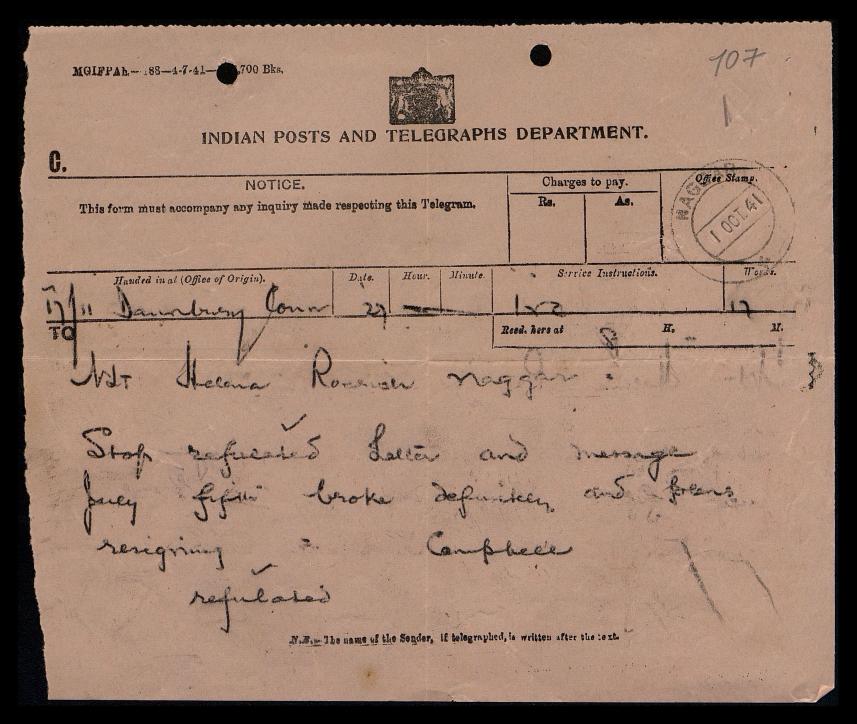 107
MGIFPAh.—188—4-7-41—,700 Bks.
INDIAN POSTS AND TELEGRAPHS DEPARTMENT.
C.
NOTICE.
This form must accompany any inquiry made respecting this Telegram.
Charges to pay.
Rs. As.
Office Stamp.
NAGGAR
1 OCT. 41
Handed in at (Office of Origin). Date. Hour. Minute. Service Instructions. Words.
Conn 29 — 17
TO
Recd. here at H. M.
NLT Helena Roerich Naggar
Stop refucated Letter and message
July fifth broke definitely and
resigning = Campbell
refucated
N.B.—The name of the Sender, if telegraphed, is written after the text.